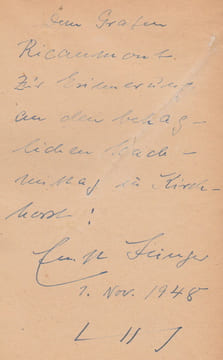 Dem Grafen
Ricaumont.
Zur Erinnerung
an den behag-
lichen Nach-
mittag in Kirch-
horst!
Ernst Jünger
1. Nov. 1948